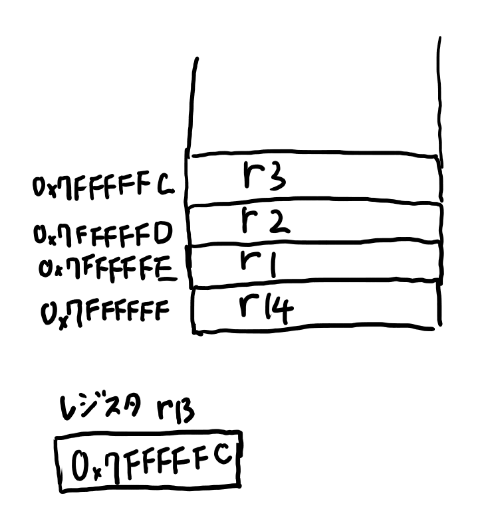 0x7FFFFFC r3
0x7FFFFFD r2
0x7FFFFFE r1
0x7FFFFFF r14
レジスタ r13
0x7FFFFFC